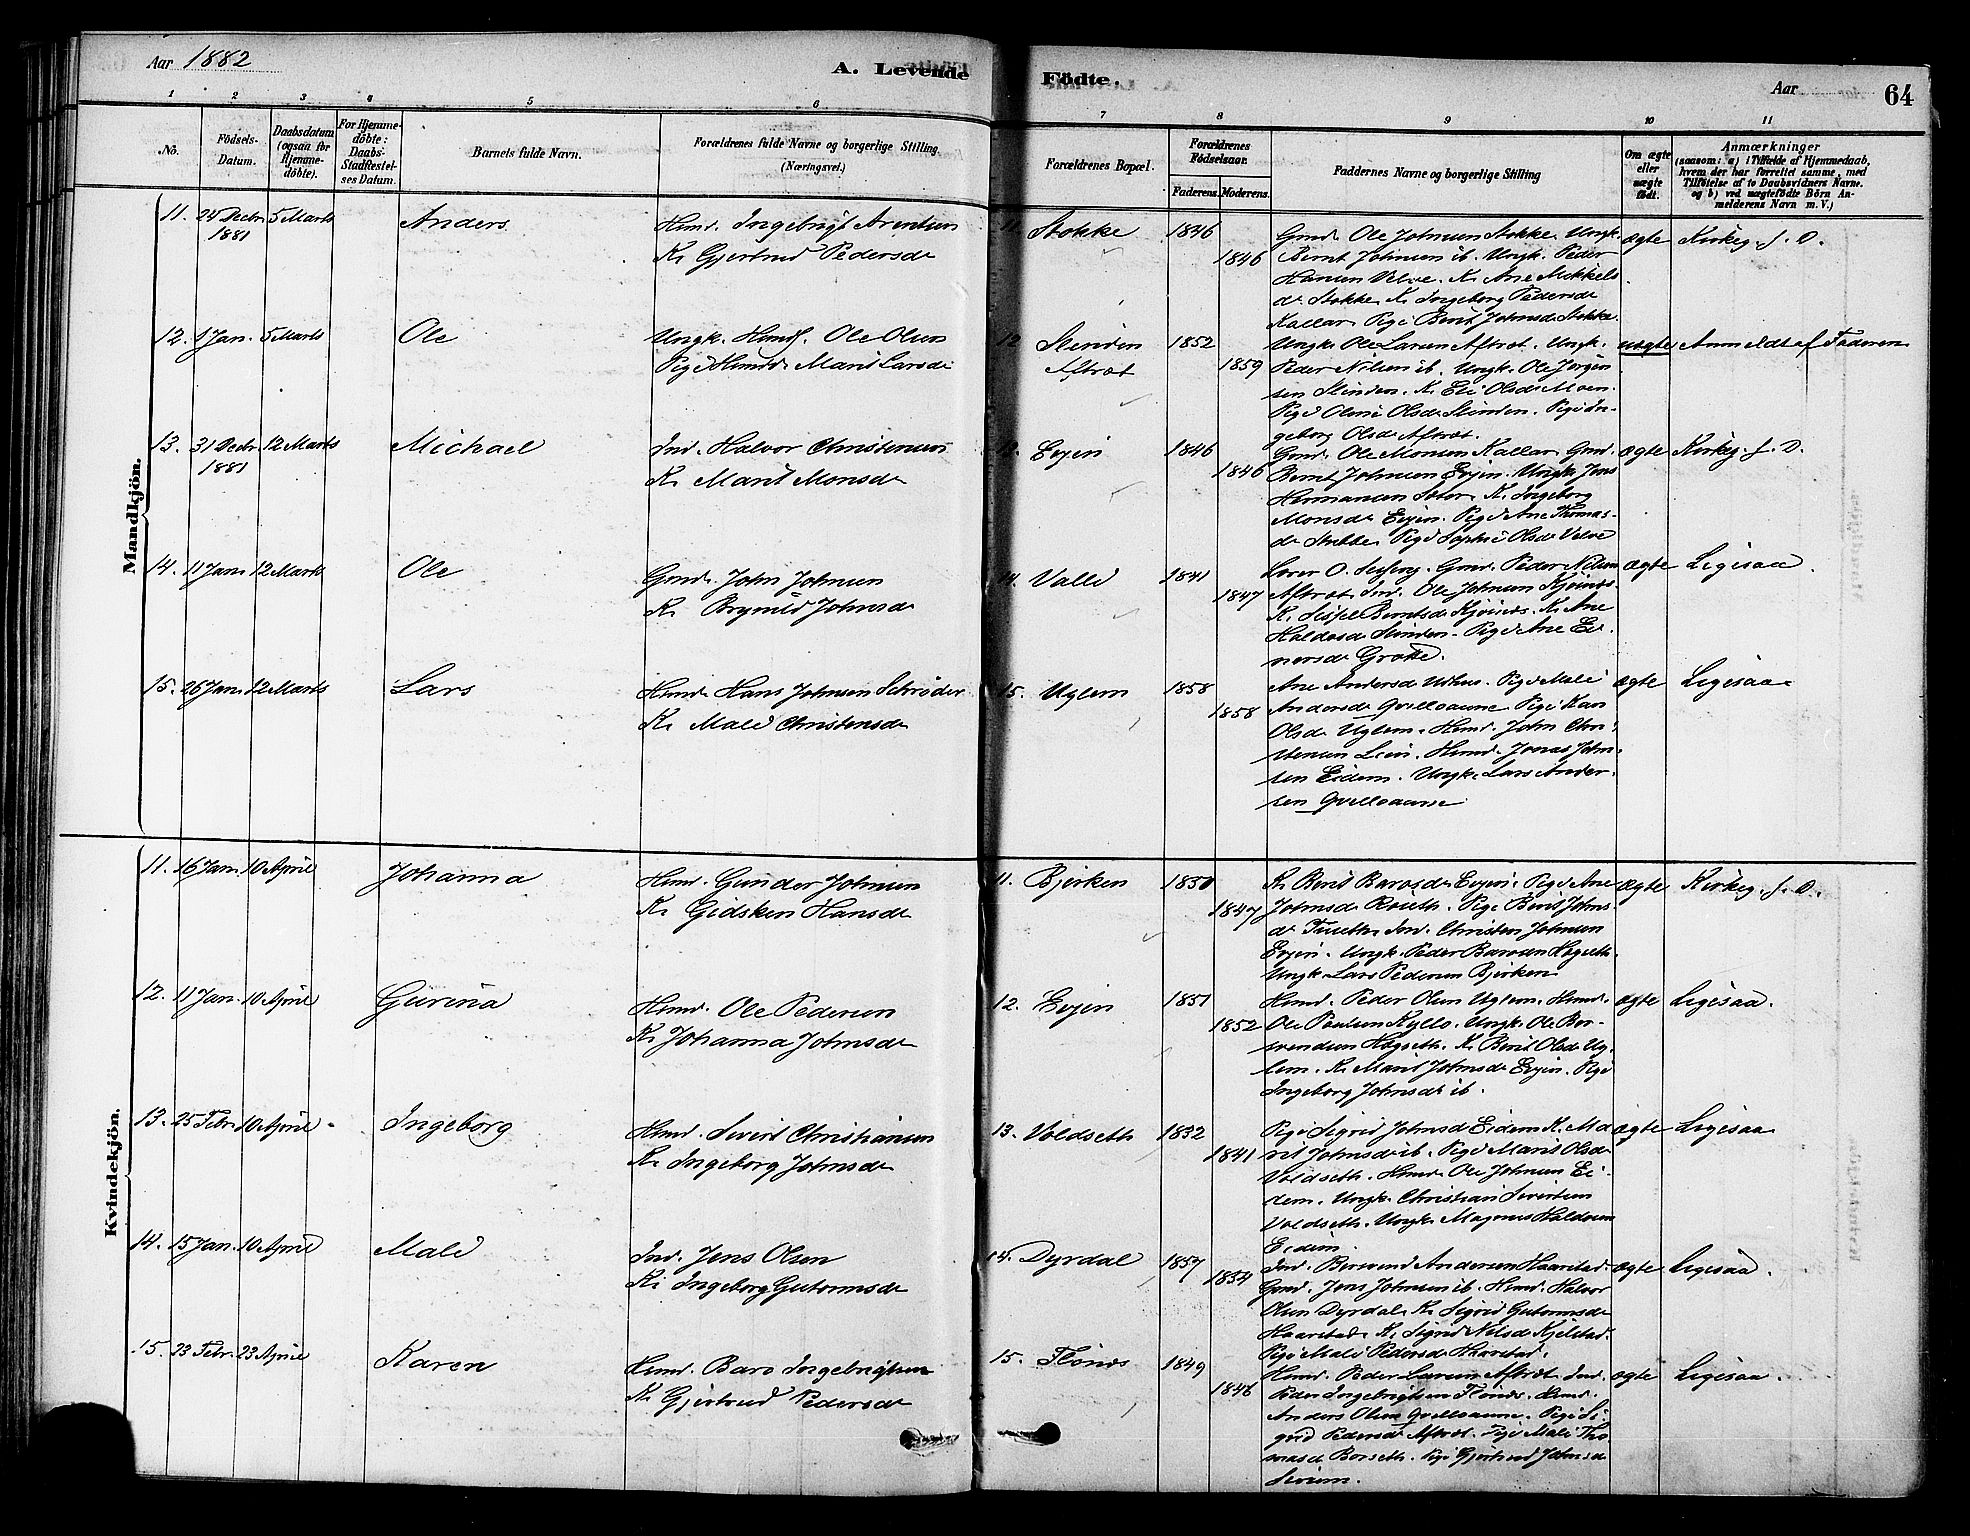 Aar 1882
A. Levende
Födte.
Aar
64
1 2 3 4 5 6 7 8 9 10 11
No.
Födsels-
Datum.
Daabsdatum
(ogsaa for
Hjemme-
döbte).
For Hjemme-
döbte:
Daabs-
Stadfæstel-
ses Datum.
Barnets fulde Navn.
Forældrenes fulde Navne og borgerlige Stilling.
(Næringsvei.)
Forældrenes Bopæl.
Forældrenes
Födselsaar.
Faderens. Moderens.
Faddernes Navne og borgerlige Stilling
Om ægte
eller
uægte
födt.
Anmærkninger
(saasom: a) i Tilfælde af Hjemmedaab,
hvem der har forrettet samme, med
Tilföielse af to Daabsvidners Navne.
og b) ved uægtefödte Börn An-
melderens Navn m. V.)
Mandkjön.
11. 24 Decbr. 5 Marts Anders
1881
Hmd. Ingebrigt Arentsen
K. Gjertrud Pedersd.
11. Stokke 1846
1846
Gmd. Ole Johnsen Stokke. Ungk.
Bernt Johnsen ib. Ungk. Peder
Hansen Velve. K. Ane Mikkels
d. Stokke. K. Ingeborg Pedersd.
Kallar. Pige Berit Johnsd. Stokke.
ægte Kirkeg. f. D.
12. 1 Jan. 5 Marts Ole
Ungk. Hmdf. Ole Olsen
Pige Hmdd. Marit Larsd.
12. Slinden 1852
Aftret 1859
Ungk. Ole Larsen Aftret. Ungk.
Peder Nilsen ib. Ungk. Ole Jörgen
sen Slinden. K. Eli Olsd. Moen.
Pige Oline Olsd. Slinden. Pige In-
geborg Olsd. Aftret.
uægte Anmeldt af Faderen
13. 31 Decbr. 12 Marts Michael
1881
Ind. Halvor Christensen
K. Marit Monsd.
13. Evjen 1846
1846
Gmd. Ole Monsen Kallar. Gmd.
Bernt Johnsen Evjen. Ungk. Jens
Hermansen Sæter. K. Ingeborg
Monsd. Evjen. Pige Ane Thomas-
d. Stubbe. Pige Sophie Olsd. Velve
ægte Kirkeg. f. D.
14. 11 Jan. 12 Marts Ole
Gmd. John Johnsen
K. Brynild Johnsd.
14. Valli 1841
1847
Lærer O. Gmd. Peder Nilsen
Aftret. Ind. Ole Johnsen Kjösnes.
K. Sissel Berntsd. Kjösnes. K. Ane
Haldosd. Slinden. Pige Ane Ei-
nersd. Grøtte.
ægte Ligesaa.
15. 26 Jan. 12 Marts Lars
Hmd. Hans Johnsen Schrøder
K. Mali Christensd.
15. Uglem 1858
1858
Ane Andersd. Udhus. Pige Mali
Andersd. Qvelloaune. Pige Kari
Olsd. Uglem. Hmd. John Chri-
stensen Lien. Hmd. Jonas John-
sen Eidem. Ungk. Lars Ander-
sen Qvelloaune
ægte Ligesaa.
Kvindekjön.
11. 16 Jan. 10 April Johanna
Hmd. Gunder Johnsen
K. Gidsken Hansd.
11. Bjerken 1850
1847
K. Berit Barosd. Evjen. Pige Ane
Johnsd. Roseth. Pige Berit Johns-
d. Tuseth. Ind. Christen Johnsen
Evjen. Ungk. Peder Barosen Hogseth.
Ungk. Lars Pedersen Bjerken
ægte Kirkeg. f. D.
12. 11 Jan. 10 April Gurina
Hmd. Ole Pedersen
K. Johanna Johnsd.
12. Evjen 1851
1852
Hmd. Peder Olsen Uglem. Hmd.
Ole Paulsen Kyllo. Ungk. Ole Bor-
svendsen Hogseth. K. Berit Olsd. Ug-
lem. K. Marit Johnsd. Evjen. Pige
Ingeborg Johnsd. ib.
ægte Ligesaa.
13. 25 Febr. 10 April Ingeborg
Hmd. Sivert Christiansen
K. Ingeborg Johnsd.
13. Voldseth 1832
1841
Pige Sigrid Johnsd. Eidem. K. Ma
rit Johnsd. ib. Pige Marit Olsd.
Voldseth. Hmd. Ole Johnsen Ei-
dem. Ungk. Christian Sivertsen
Voldseth. Ungk. Magnus Haldorsen
Eidem.
ægte Ligesaa
14. 15 Jan. 10 April Mali
Ind. Jens Olsen
K. Ingeborg Gutormsd.
14. Dyrdal 1857
1854
Ind. Andersen Haarstad.
Gmd. Jens Johnsen ib. Hmd. Halvor
Olsen Dyrdal. K. Sigrid Gutormsd.
Haarstad. K. Sigrid Nilsd. Kjelstad.
Pige Mali Pedersd. Haarstad.
ægte Ligesaa.
15. 23 Febr. 23 April Karen
Hmd. Baro Ingebrigtsen
K. Gjertrud Pedersd.
15. Flönes 1849
1846
Hmd. Peder Larsen Aftret. Ind.
Peder Ingebrigtsen Flönes. Hmd.
Anders Olsen Qvelloaune. Pige Si-
grid Pedersd. Aftret. Pige Mali Tho
masd. Borseth. Pige Gjertrud Johnsd.
ægte Ligesaa.